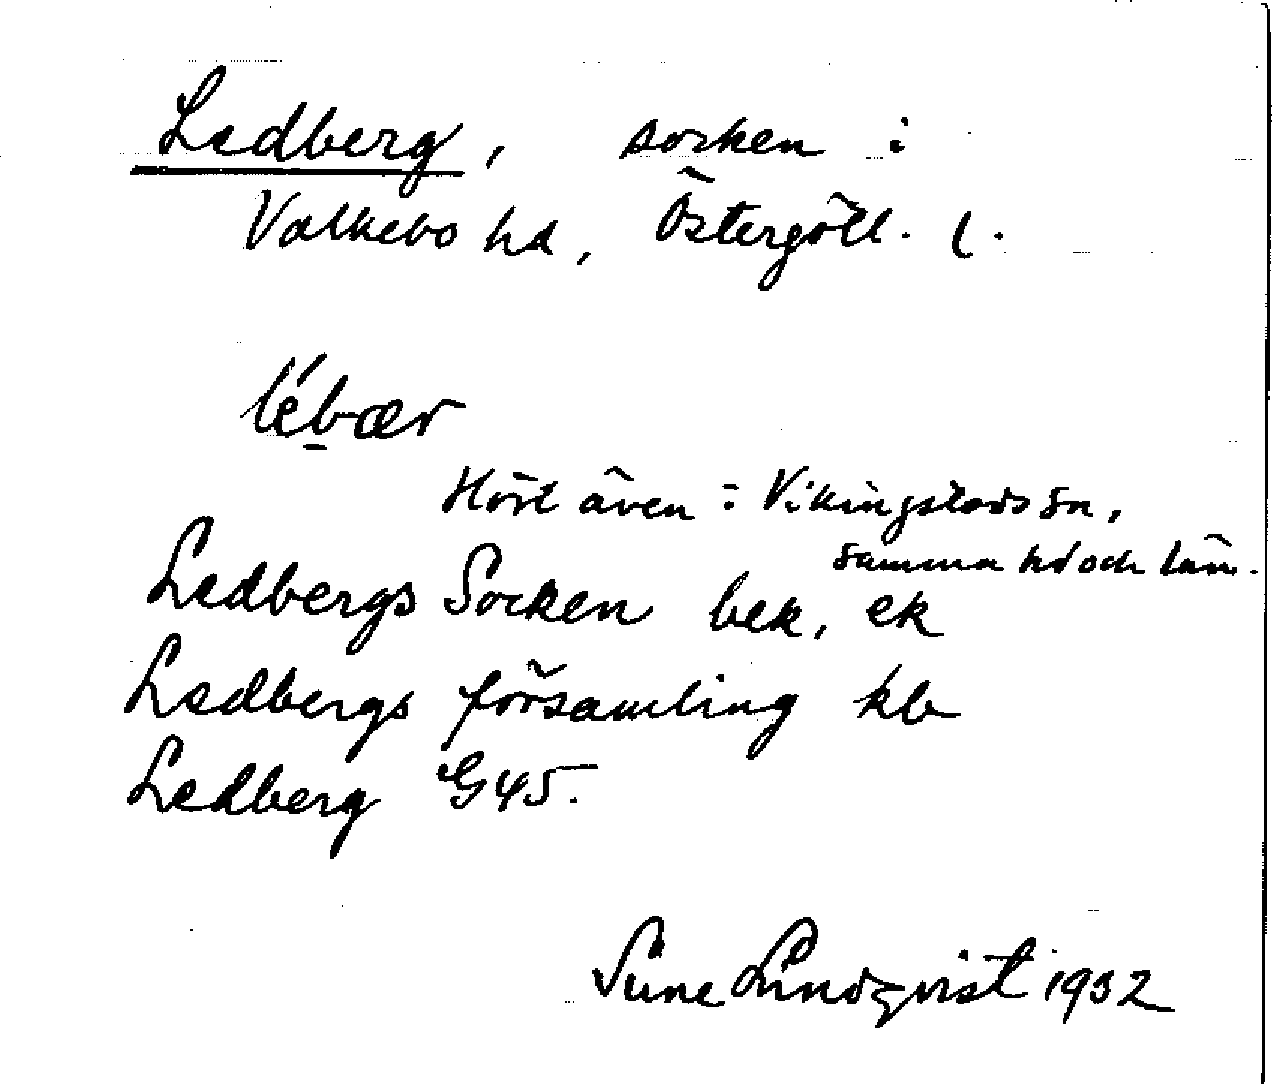 Ledberg, socken i
Valkebo hd, Östergötl. l.
lébær
Hört även i Vikingstads sn,
samma hd och län.
Ledbergs Socken bek, ek
Ledbergs församling kb
Ledberg G45.
Sune Lindqvist 1932